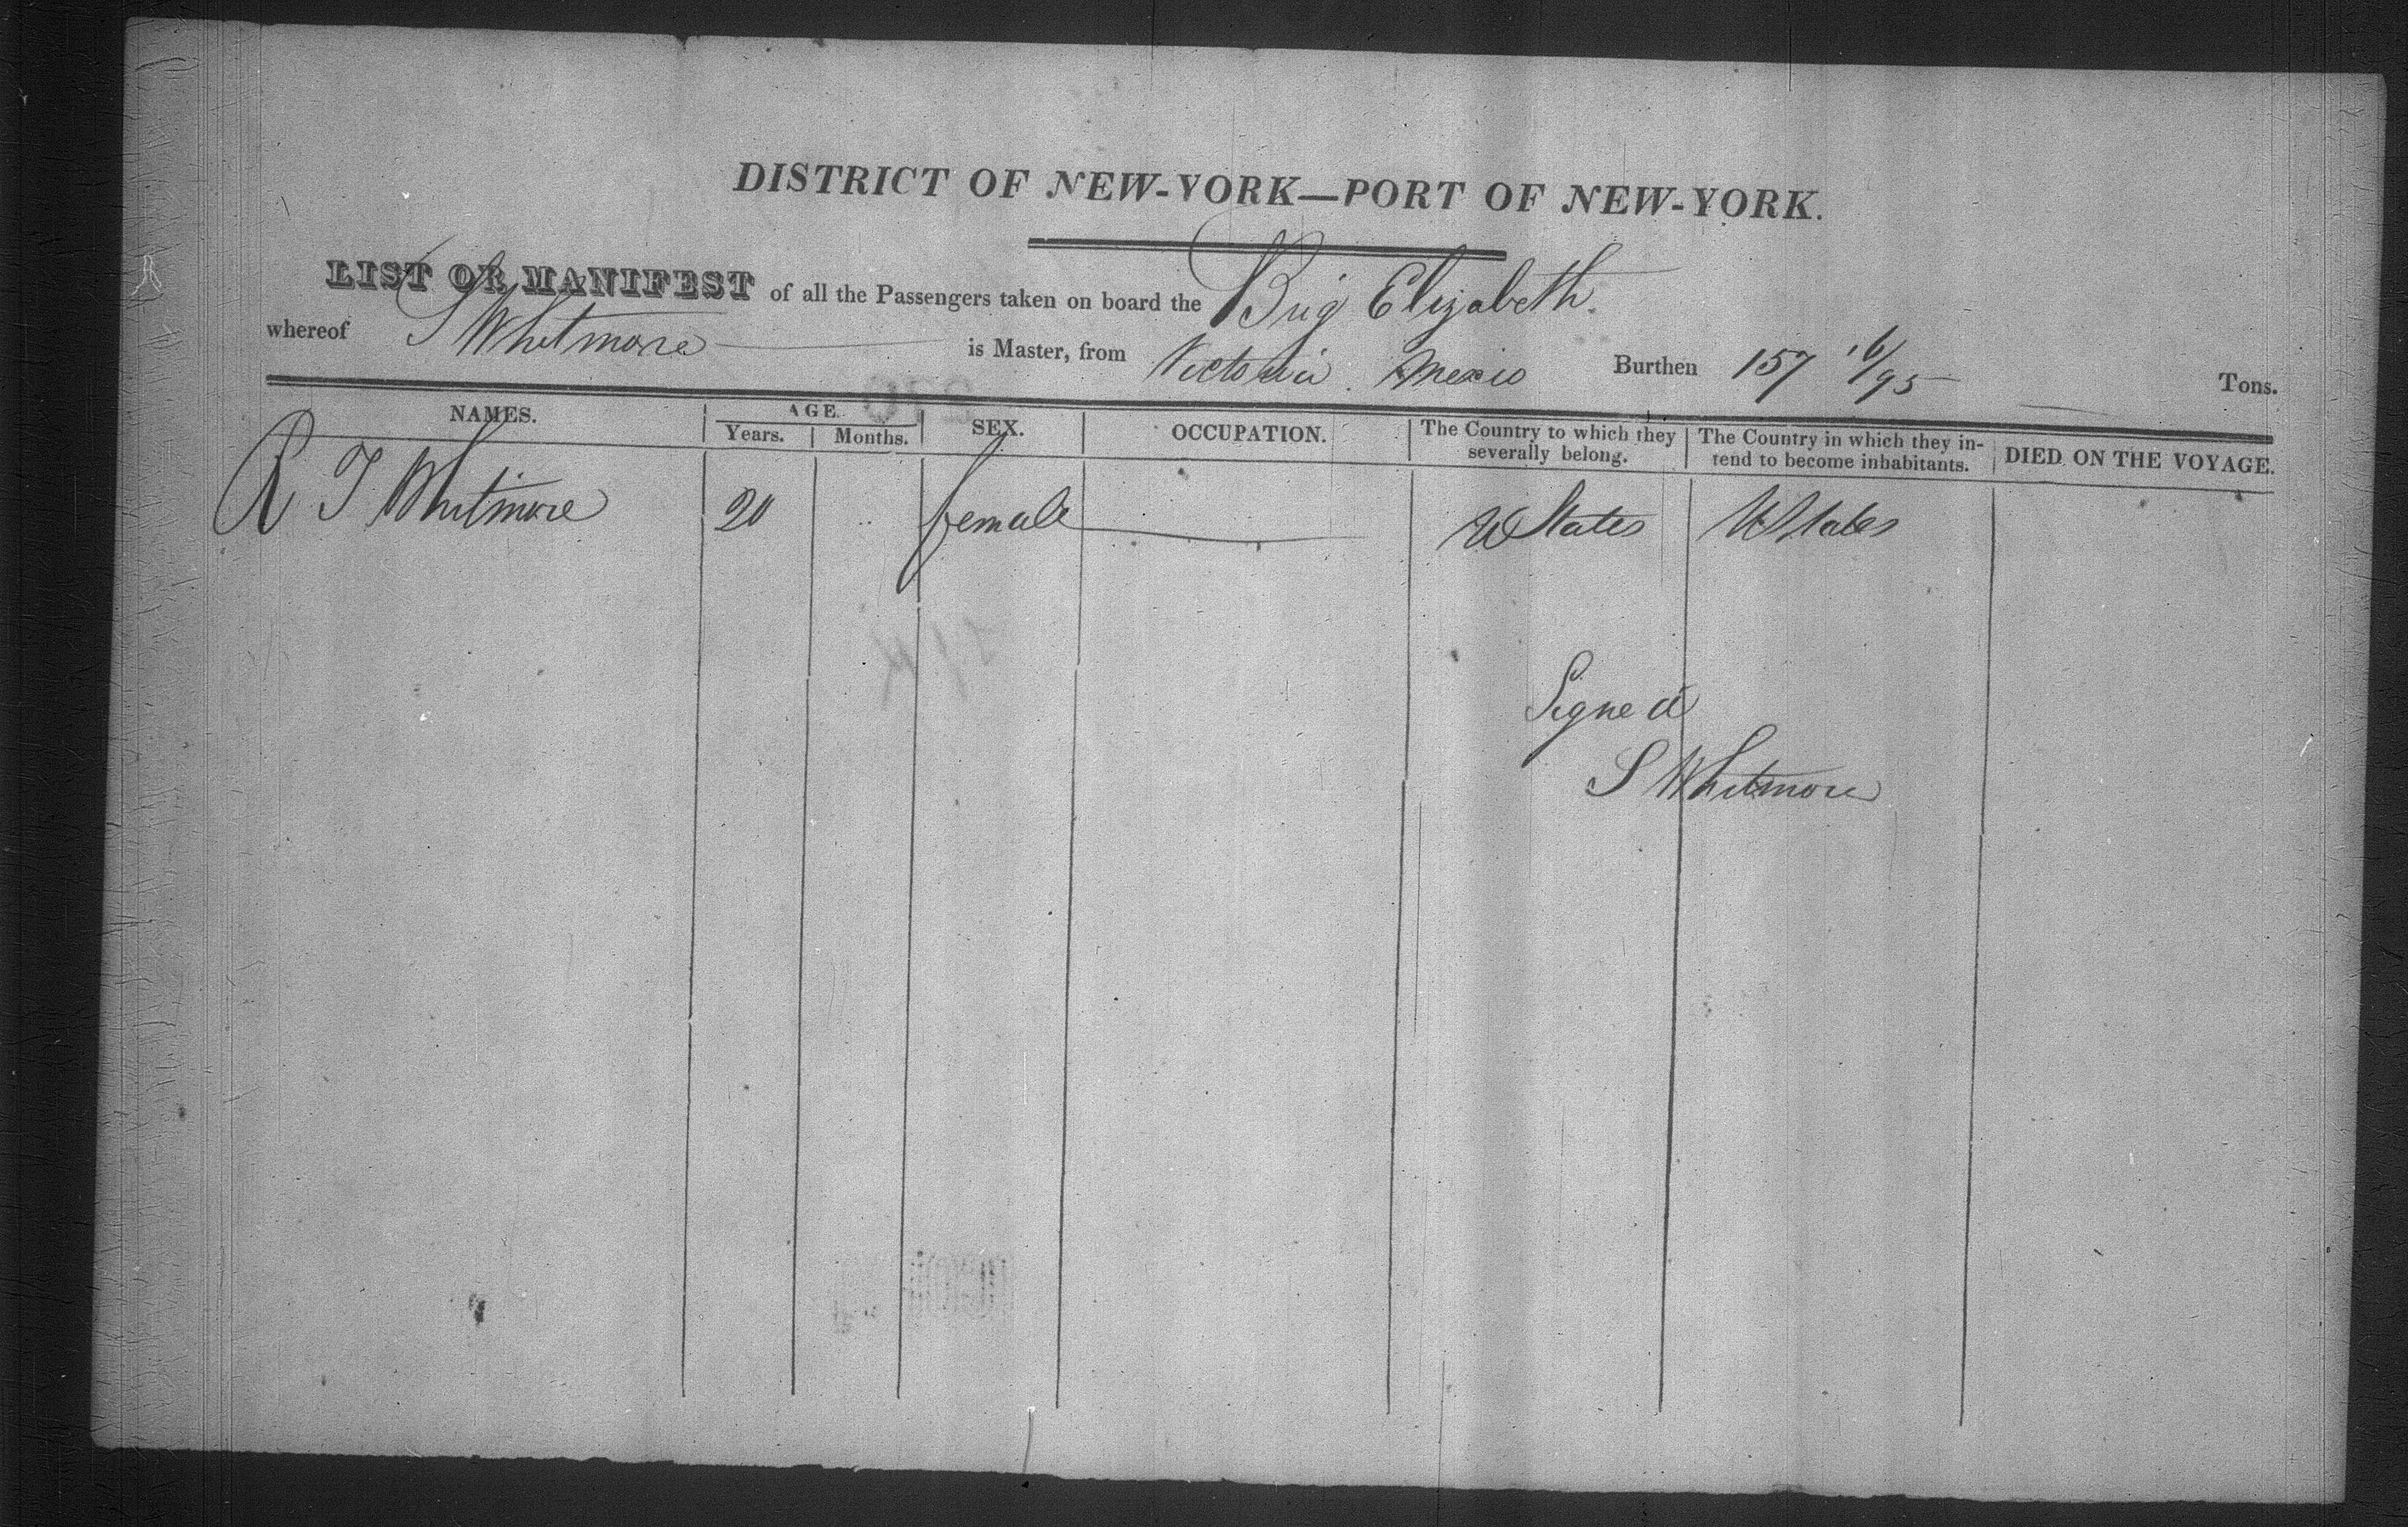 DISTRICT OF NEW-YORK—PORT OF NEW-YORK.
LIST OR MANIFEST of all the Passengers taken on board the Brig Elizabeth.
whereof S Whitmore is Master, from Victoria. Mexico Burthen 157 16/95 Tons.
NAMES. AGE. SEX. OCCUPATION. The Country to which they severally belong. The Country in which they intend to become inhabitants. DIED ON THE VOYAGE.
Years. Months.
R T Whitmore 20 female U States U States
Signed
S Whitmore